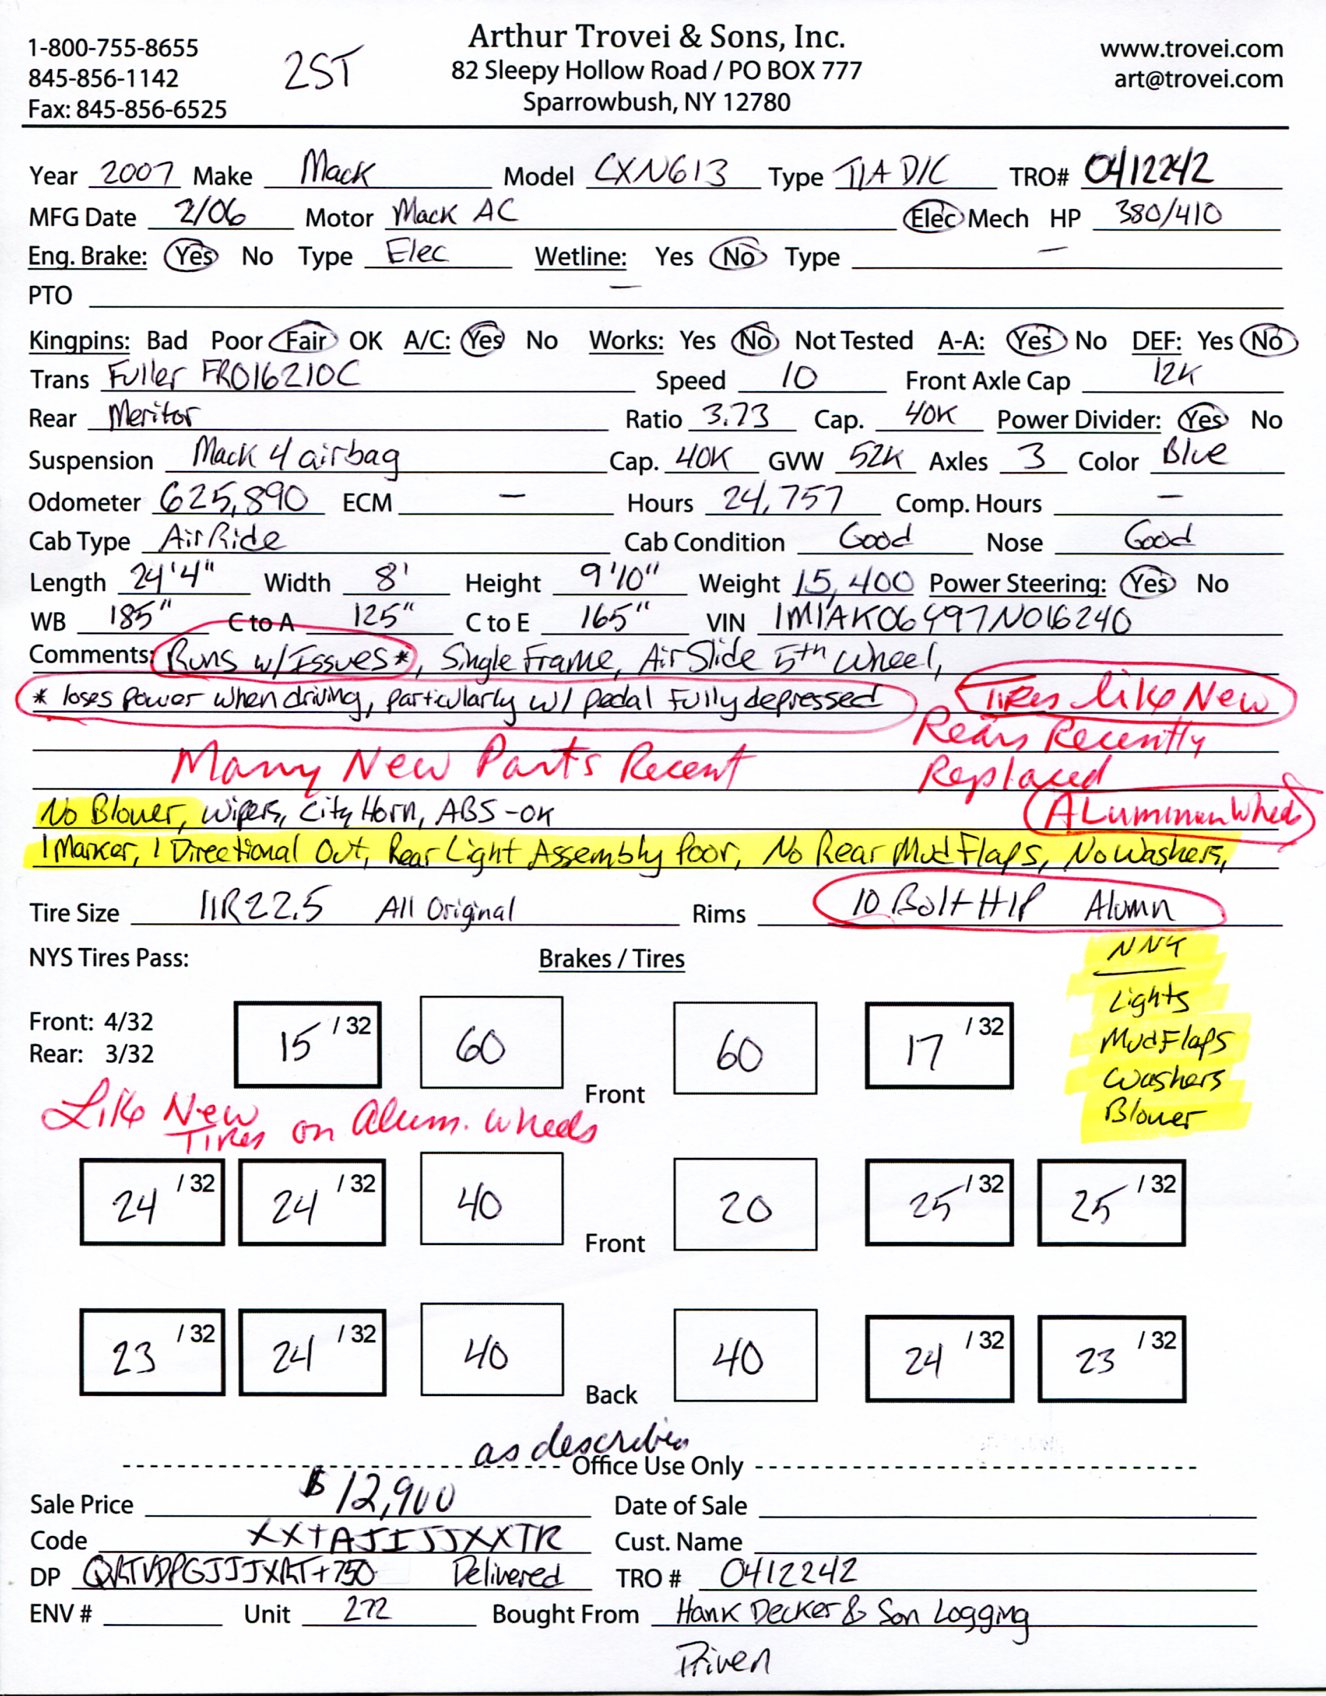 Arthur Trovei & Sons, Inc.
1-800-755-8655 82 Sleepy Hollow Road / PO BOX 777 www.trovei.com
845-856-1142 2ST Sparrowbush, NY 12780 art@trovei.com
Fax: 845-856-6525
Year 2007 Make Mack Model CXN613 Type T/A D/C TRO# 0412242
MFG Date 2/06 Motor Mack AC Elec Mech HP 380/410
Eng. Brake: Yes No Type Elec Wetline: Yes No Type —
PTO —
Kingpins: Bad Poor Fair OK A/C: Yes No Works: Yes No Not Tested A-A: Yes No DEF: Yes No
Trans Fuller FRO16210C Speed 10 Front Axle Cap 12K
Rear Meritor Ratio 3.73 Cap. 40K Power Divider: Yes No
Suspension Mack 4 airbag Cap. 40K GVW 52K Axles 3 Color Blue
Odometer 625,890 ECM — Hours 24,757 Comp. Hours —
Cab Type Air Ride Cab Condition Good Nose Good
Length 24'4" Width 8' Height 9'10" Weight 15,400 Power Steering: Yes No
WB 185" C to A 125" C to E 165" VIN 1M1AK06Y97N016240
Comments: Runs w/Issues*, Single Frame, Air Slide 5th Wheel,
* loses power when driving, particularly w/ pedal fully depressed Tires like New
Rears Recently
Many New Parts Recent Replaced
No Blower, Wipers, City Horn, ABS-OK ALuminum Wheels
1 Marker, 1 Directional Out, Rear Light Assembly Poor, No Rear Mud Flaps, No Washers,
Tire Size 11R22.5 All Original Rims 10 Bolt H/P Alumn
NYS Tires Pass: Brakes / Tires NNY
Lights
Front: 4/32 15 /32 60 Front 60 17 /32 Mud Flaps
Rear: 3/32 Washers
Blower
Like New Tires on Alum. Wheels
24 /32 24 /32 40 Front 20 25 /32 25 /32
23 /32 24 /32 40 Back 40 24 /32 23 /32
as described
Office Use Only
Sale Price $12,900 Date of Sale
Code XXTAJIJJXXTR Cust. Name
DP +750 Delivered TRO # 0412242
ENV # Unit 272 Bought From Hank Decker & Son Logging
Driven